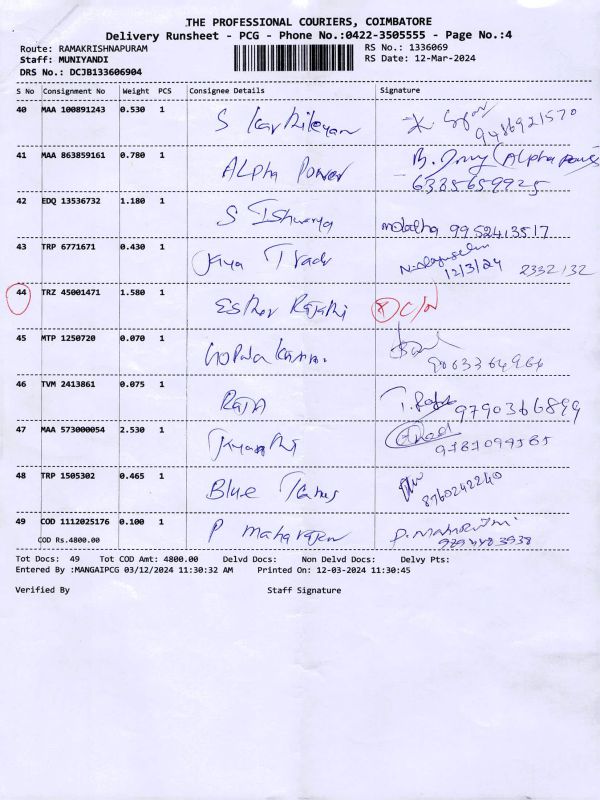 THE PROFESSIONAL COURIERS, COIMBATORE
Delivery Runsheet - PCG - Phone No.:0422-3505555 - Page No.:4
Route: RAMAKRISHNAPURAM RS No.: 1336069
Staff: MUNIYANDI RS Date: 12-Mar-2024
DRS No.: DCJB133606904
S No Consignment No Weight PCS Consignee Details Signature
40 MAA 100891243 0.530 1 S Karthikeyan 9486921570
41 MAA 863859161 0.780 1 ALpha Power (Alpha power)
6385659925
42 EDQ 13536732 1.180 1 S Ishwarya 9952413517
43 TRP 6771671 0.430 1 Jiya Trade
12/3/24 2332132
44 TRZ 45001471 1.580 1 Esther Rajathi
45 MTP 1250720 0.070 1
46 TVM 2413861 0.075 1 Raja 9790366899
47 MAA 573000054 2.530 1 Jkyanthi
48 TRP 1505302 0.465 1 Blue
8760242240
49 COD 1112025176 0.100 1 P Maharajan
COD Rs.4800.00
Tot Docs: 49 Tot COD Amt: 4800.00 Delvd Docs: Non Delvd Docs: Delvy Pts:
Entered By :MANGAIPCG 03/12/2024 11:30:32 AM Printed On: 12-03-2024 11:30:45
Verified By Staff Signature